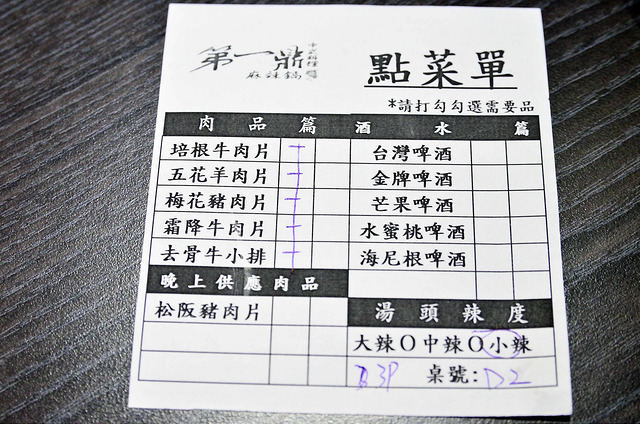 第一鼎
麻辣鍋
點菜單
*請打勾勾選需要品
肉品篇 酒水篇
培根牛肉片 一 台灣啤酒
五花羊肉片 一 金牌啤酒
梅花豬肉片 一 芒果啤酒
霜降牛肉片 一 水蜜桃啤酒
去骨牛小排 一 海尼根啤酒
晚上供應肉品
松阪豬肉片 湯頭辣度
大辣O中辣O小辣
3P 桌號:D2